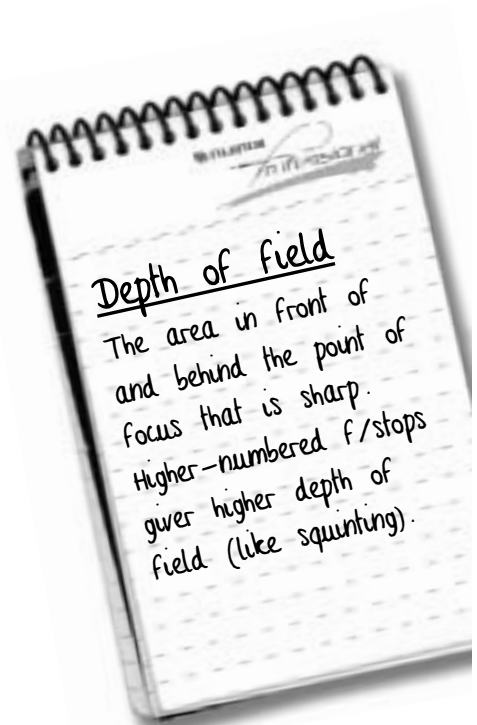 Depth of field
The area in front of
and behind the point of
focus that is sharp.
Higher-numbered f/stops
giver higher depth of
field (like squinting).